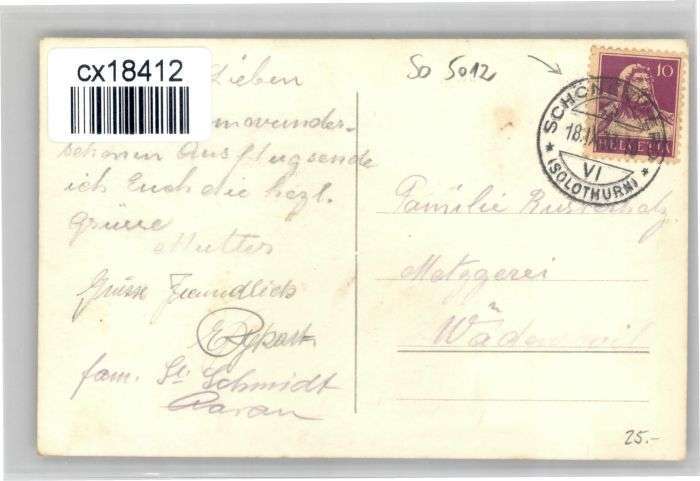 cx18412
Lieben
schönen Ausflug sende
ich Euch die hezl.
Grüsse
Mutter
Grüsse Freundlich
fam. St. Schmidt
Aarau
So 5012
10
HELVETIA
18.I
VI
(SOLOTHURN)
Familie
Metzgerei
Wädenswil
25.-